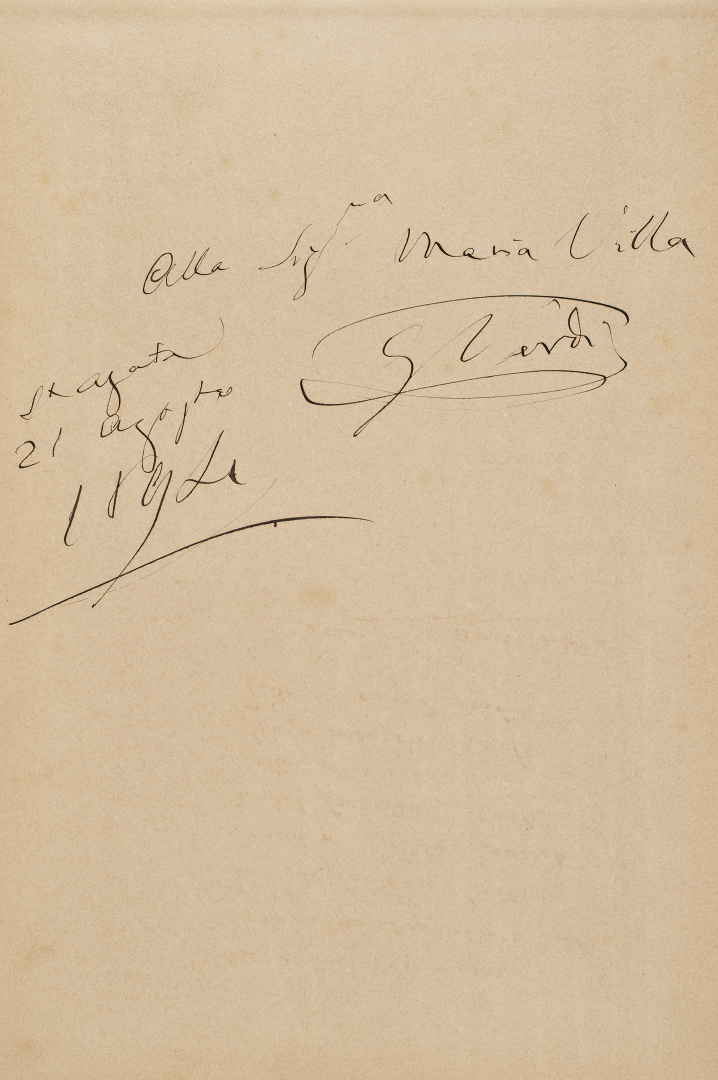 Alla Sig.ra Maria Villa
G Verdi
St Agata
21 Agosto
1894